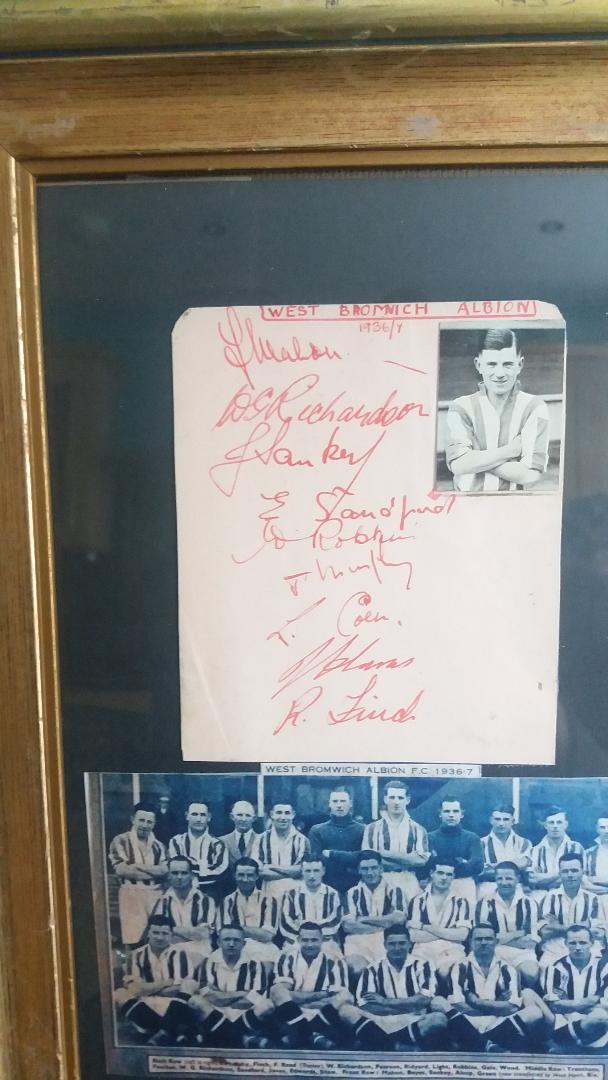 WEST BROMWICH ALBION
1936/7
J Mahon
W G Richardson
J Sankey
E Sandford
W. Robbins
J Murphy
L. Coen.
R. Finch
WEST BROMWICH ALBION F.C. 1936-7
Back Row Murphy, Finch, F. Reed (Trainer) W. Richardson, Pearson, Ridyard, Light, Robbins, Gale, Wood. Middle Row: Trentham,
W. G. Richardson, Sandford, Jones, Edwards, Shaw. Front Row: Mahon, Boyes, Sankey, Alsop, Green